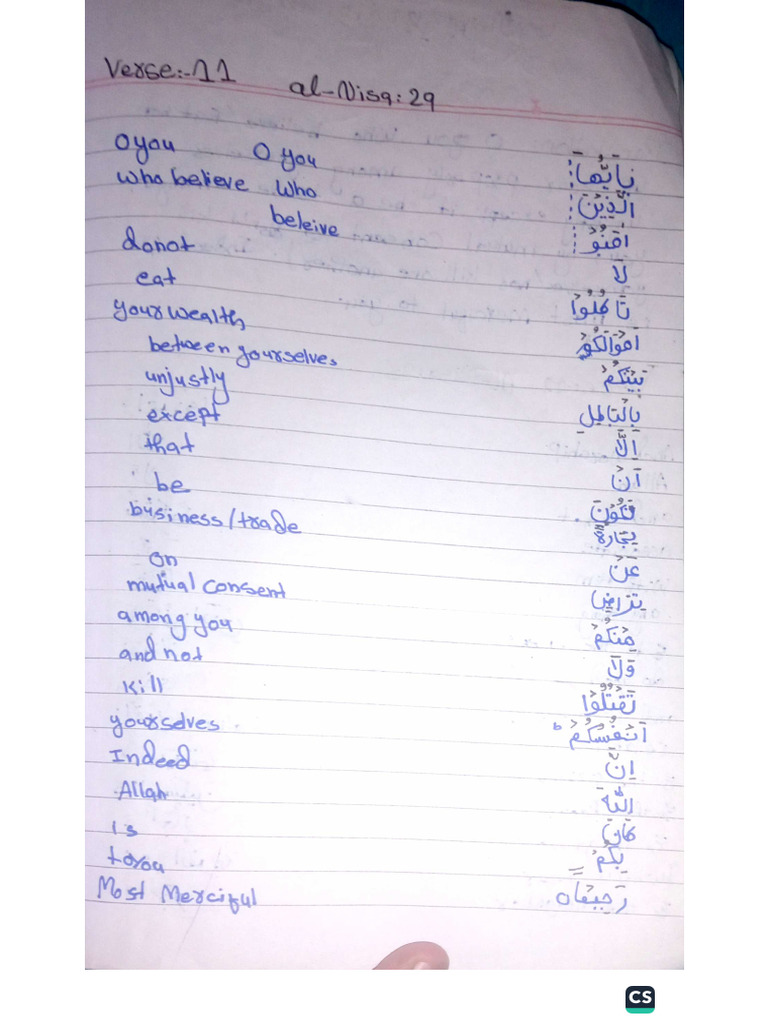 Verse:-11 al-Nisa:29
O you O you يٰۤاَيُّهَا
who believe Who الَّذِيْنَ
beleive
donot اٰمَنُوْا
eat لَا
your wealth تَاْكُلُوْۤا
between yourselves اَمْوَالَكُمْ
unjustly بَيْنَكُمْ
except بِالْبَاطِلِ
that اِلَّاۤ
be اَنْ
business/trade تَكُوْنَ
تِجَارَةً
on عَنْ
mutual consent تَرَاضٍ
among you مِّنْكُمْ
and not وَلَا
kill تَقْتُلُوْۤا
yourselves اَنْفُسَكُمْ ط
Indeed اِنَّ
Allah اللّٰهَ
is كَانَ
to you بِكُمْ
Most Merciful رَحِيْمًا
CS